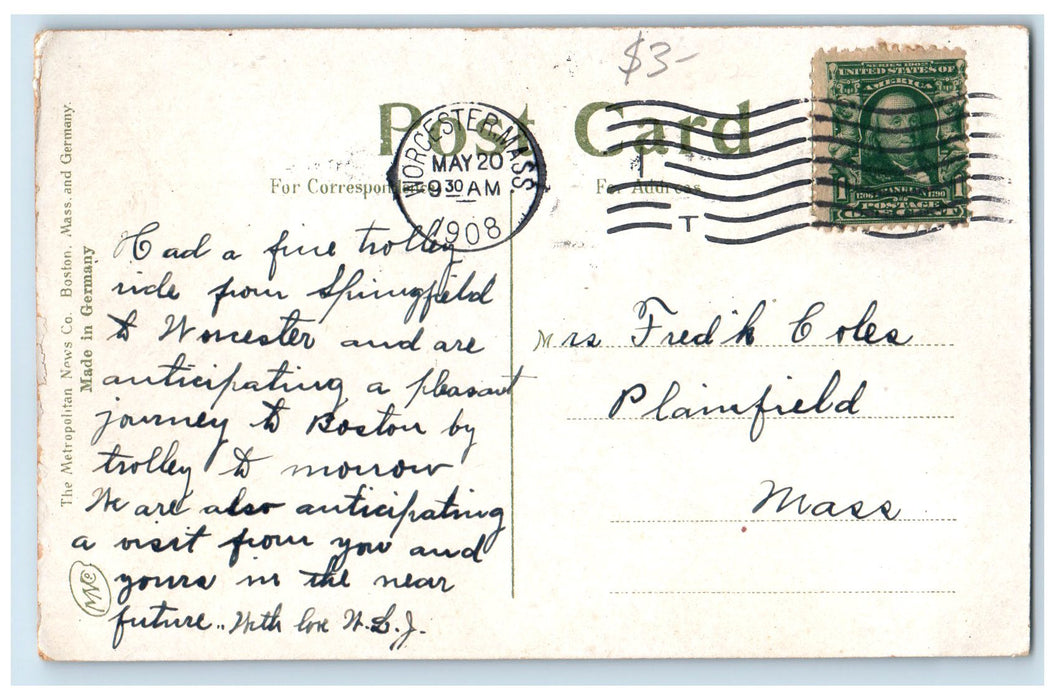 $3-
Post Card
For Correspondence
For Address
WORCESTER, MASS
MAY 20
9 30 AM
1908
T
SERIES 1902
UNITED STATES OF
AMERICA
1706 FRANKLIN 1790
1 POSTAGE 1
ONE CENT
Had a fine trolley
ride from Springfield
to Worcester and are
anticipating a pleasant
journey to Boston by
trolley to morrow
We are also anticipating
a visit from you and
yours in the near
future.. With love W.L.J.
Mrs Fred'k Coles
Plainfield
Mass
The Metropolitan News Co. Boston, Mass. and Germany.
Made in Germany
MNC